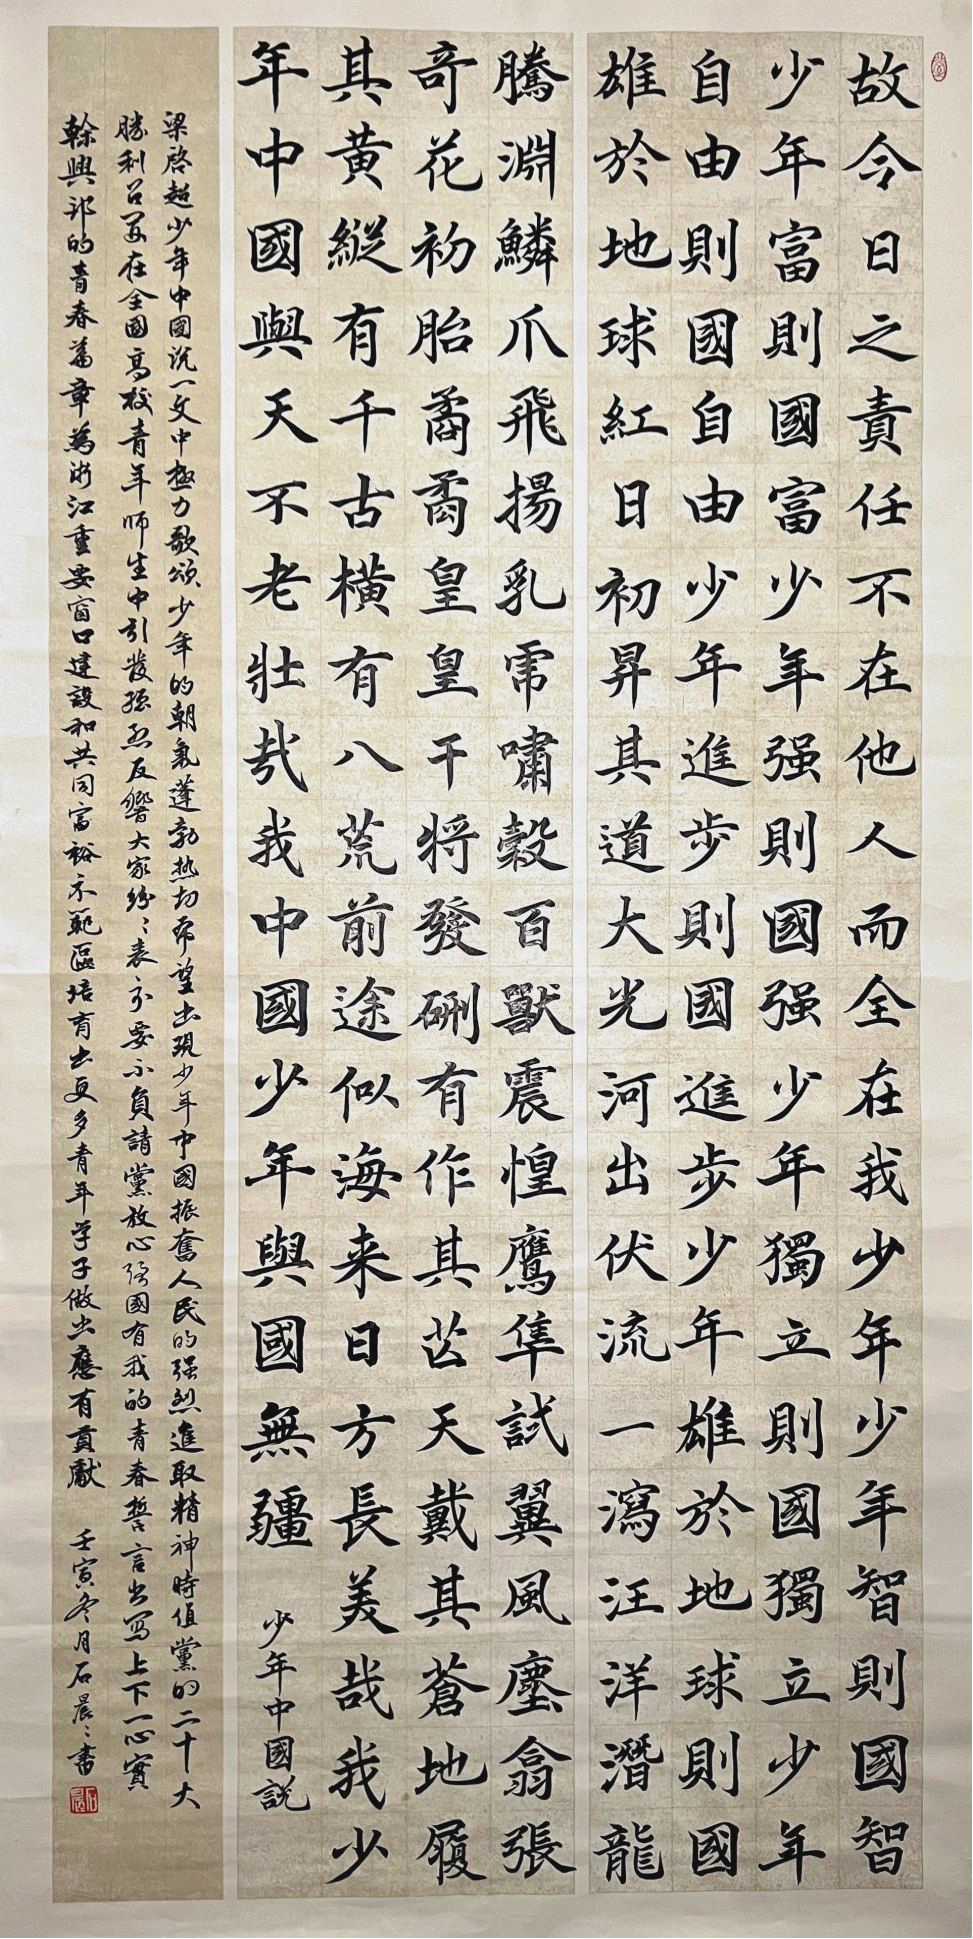 故今日之責任不在他人而全在我少年少年智則國智
少年富則國富少年强則國强少年獨立則國獨立少年
自由則國自由少年進步則國進步少年雄於地球則國
雄於地球紅日初昇其道大光河出伏流一瀉汪洋潛龍
騰淵鱗爪飛揚乳虎嘯穀百獸震惶鷹隼試翼風塵翕張
奇花初胎矞矞皇皇干將發硎有作其芒天戴其蒼地履
其黄縱有千古橫有八荒前途似海来日方長美哉我少
年中國與天不老壯哉我中國少年與國無疆 少年中國説
梁啓超少年中國说一文中極力歌頌少年的朝氣蓬勃热切希望出現少年中國振奮人民的强烈進取精神時值黨的二十大
勝利召開在全國高校青年师生中引發强烈反響大家纷〻表示要不負請黨放心强國有我的青春誓言书寫上下一心實
幹興邦的青春篇章為浙江重要窗口建設和共同富裕示範區培育出更多青年学子做出應有貢獻 壬寅冬月石晨〻書